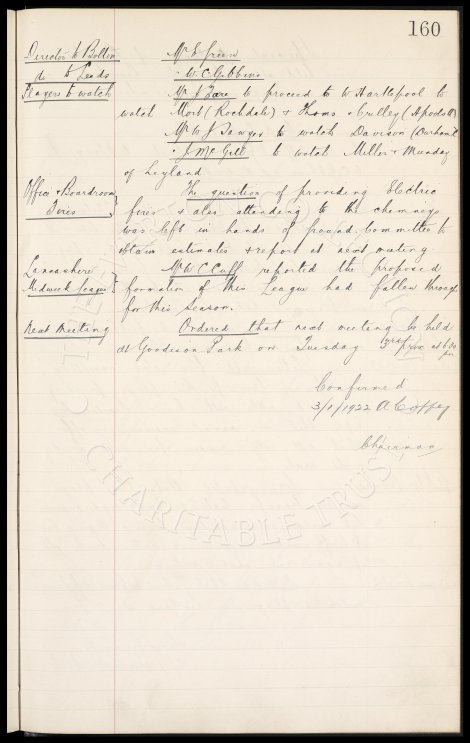 160
Director to Bolton Mr E Green
do to Leeds " W. C. Gibbins
Players to watch Mr J Fare to proceed to W Hartlepool to
watch Mort (Rochdale) & Thoms & Culley (
Mr W J Sawyer to watch Davison (Durham C
" J. McGill to watch Miller & Munday
of Leyland
Office & Boardroom The question of providing Electric
Fires fires & also attending to the chemneys
was left in hands of ground Committee to
obtain estimates & report at next meeting
Lancashire Mr W C Cuff reported the proposed
Midweek League formation of this League had fallen through
for this season.
Next Meeting Ordered that next meeting be held
at Goodison Park on Tuesday 3rd
Confirmed
3/1/1922 A Coffey
Chairman
CHARITABLE TRUST